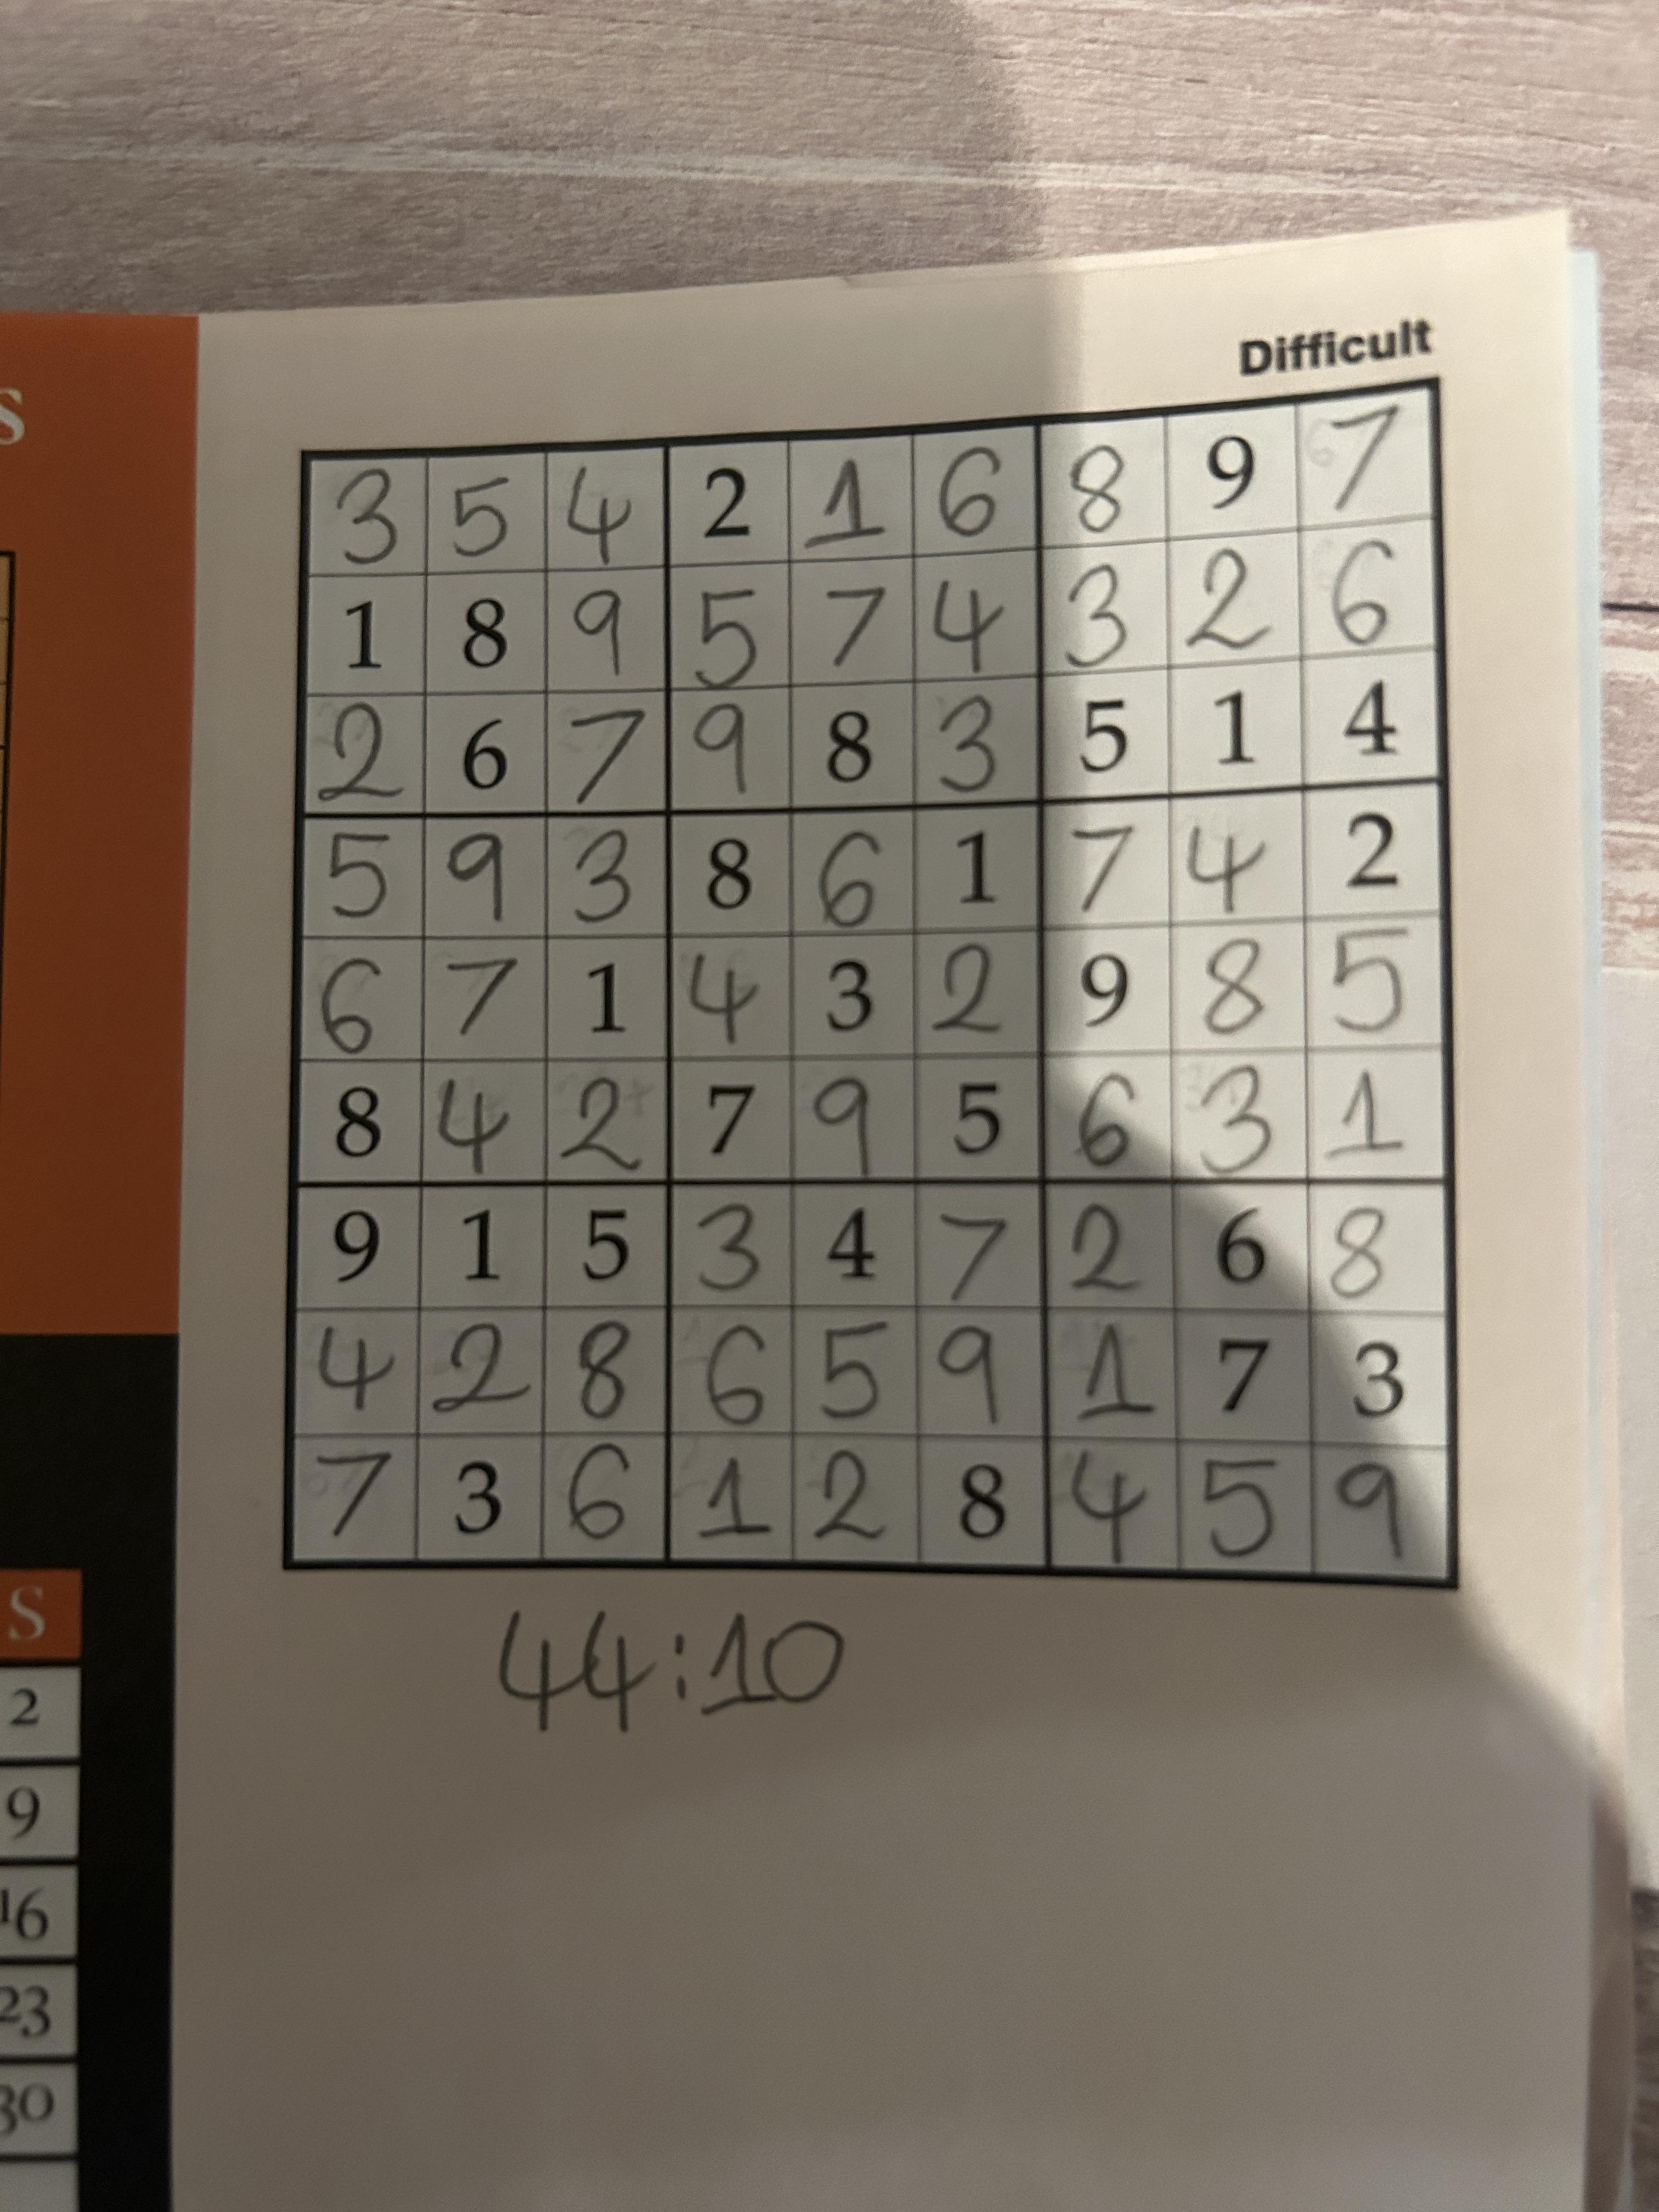 S
Difficult
3 5 4 2 1 6 8 9 7
1 8 9 5 7 4 3 2 6
2 6 7 9 8 3 5 1 4
5 9 3 8 6 1 7 4 2
6 7 1 4 3 2 9 8 5
8 4 2 7 9 5 6 3 1
9 1 5 3 4 7 2 6 8
4 2 8 6 5 9 1 7 3
7 3 6 1 2 8 4 5 9
44:10
S
2
9
16
23
30